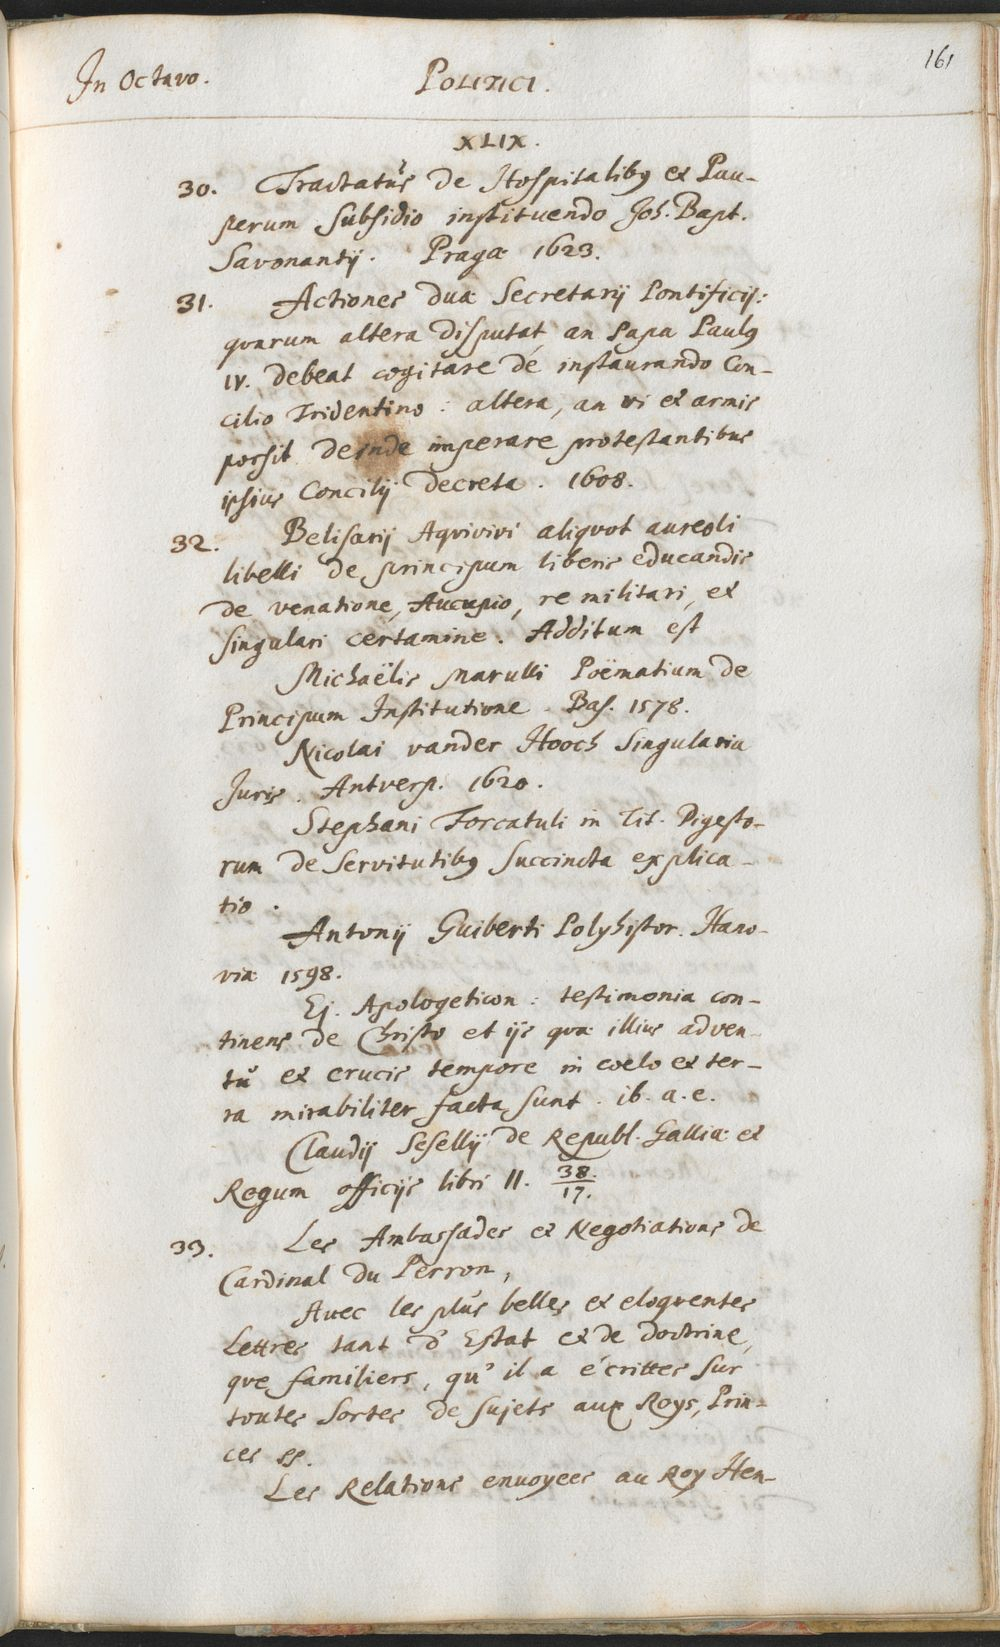 In Octavo.
POLITICI.
161
XLIX.
30. Tractatus de Hospitalibus et Pau-
perum Subsidio instituendo Joh. Bapt.
Savonantij. Pragæ 1623.
31. Actiones duæ Secretarij Pontificij:
quarum altera disputat an Papa Paulus
IV. debeat cogitare de instaurando Con-
cilio Tridentino: altera, an vi et armis
possit deinde imperare protestantibus
ipsius Concilij decreta. 1608.
32. Belisarij Aqvivivi aliqvot aureoli
libelli de principum liberis educandis
de venatione, Aucupio, re militari, et
Singulari certamine. Additum est
Michaëlis Marulli Poëmatium de
Principum Institutione. Bas. 1578.
Nicolai vander Hooch Singularia
Juris. Antverp. 1620.
Stephani Forcatuli in Tit. Digesto-
rum de Servitutibus Succincta explica-
tio.
Antonij Guiberti Polyhistor. Hano-
viæ 1598.
Ej. Apologeticon: testimonia con-
tinens de Christo et ijs quæ illius adven-
tu et crucis tempore in coelo et ter-
ra mirabiliter facta sunt. ib. a. e.
Claudij Sesellij de Republ. Galliæ et
Regum officijs libri II. 38.
17.
33. Les Ambassades et Negotiations de
Cardinal du Perron,
Avec les plus belles et eloqventes
Lettres tant d'Estat et de doctrine,
qve familiers, qu'il a écrittes sur
toutes Sortes de sujets aux Roys, Prin-
ces
Les Relations envoyees au Roy Hen-